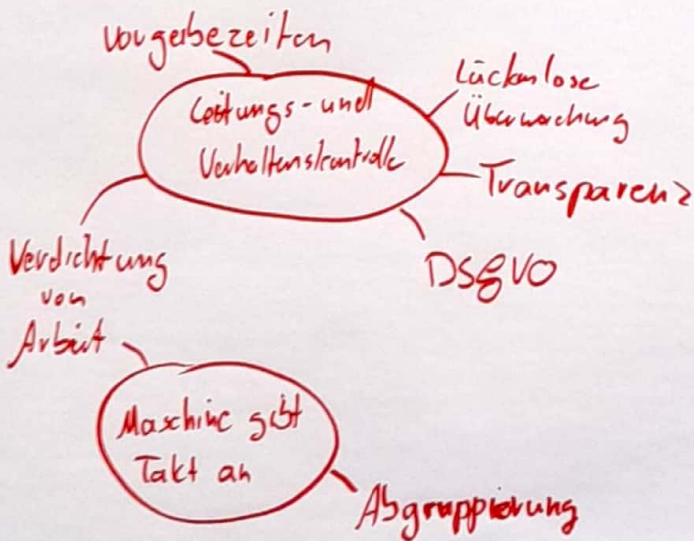 Vorgabezeiten
Leitungs- und
Verhaltenskontrolle
Lückenlose
Überwachung
Transparenz
DSGVO
Verdichtung
von
Arbeit
Maschine gibt
Takt an
Abgruppierung